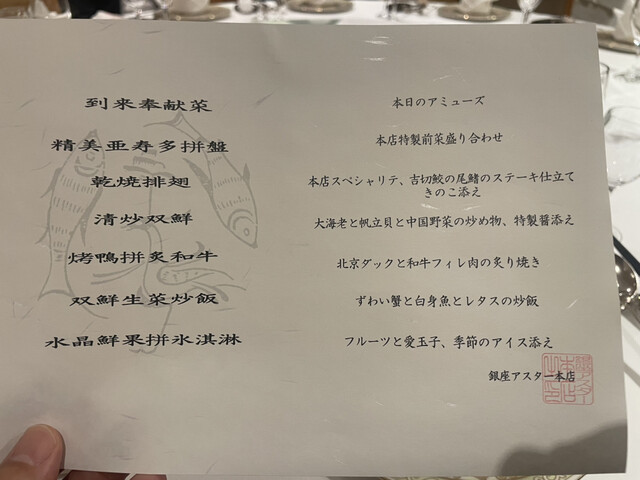 到来奉献菜
本日のアミューズ
精美亜寿多拼盤
本店特製前菜盛り合わせ
乾焼排翅
本店スペシャリテ、吉切鮫の尾鰭のステーキ仕立て
きのこ添え
清炒双鮮
大海老と帆立貝と中国野菜の炒め物、特製醤添え
烤鴨拼炙和牛
北京ダックと和牛フィレ肉の炙り焼き
双鮮生菜炒飯
ずわい蟹と白身魚とレタスの炒飯
水晶鮮果拼氷淇淋
フルーツと愛玉子、季節のアイス添え
銀座アスター本店